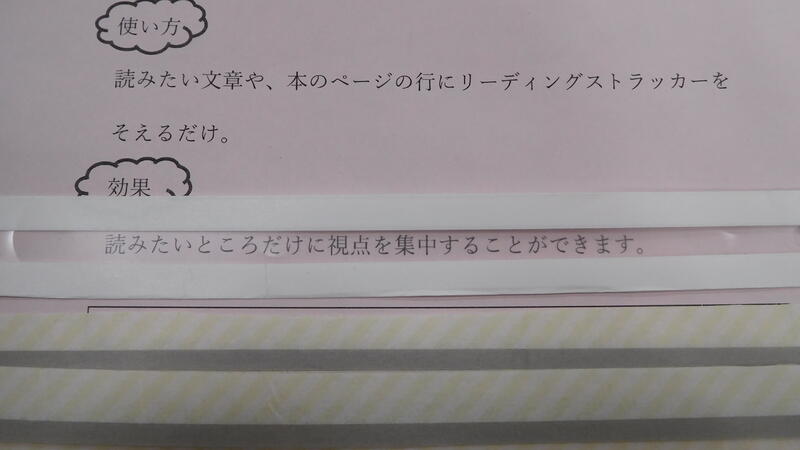 使い方
読みたい文章や、本のページの行にリーディングストラッカーを
そえるだけ。
効果
読みたいところだけに視点を集中することができます。